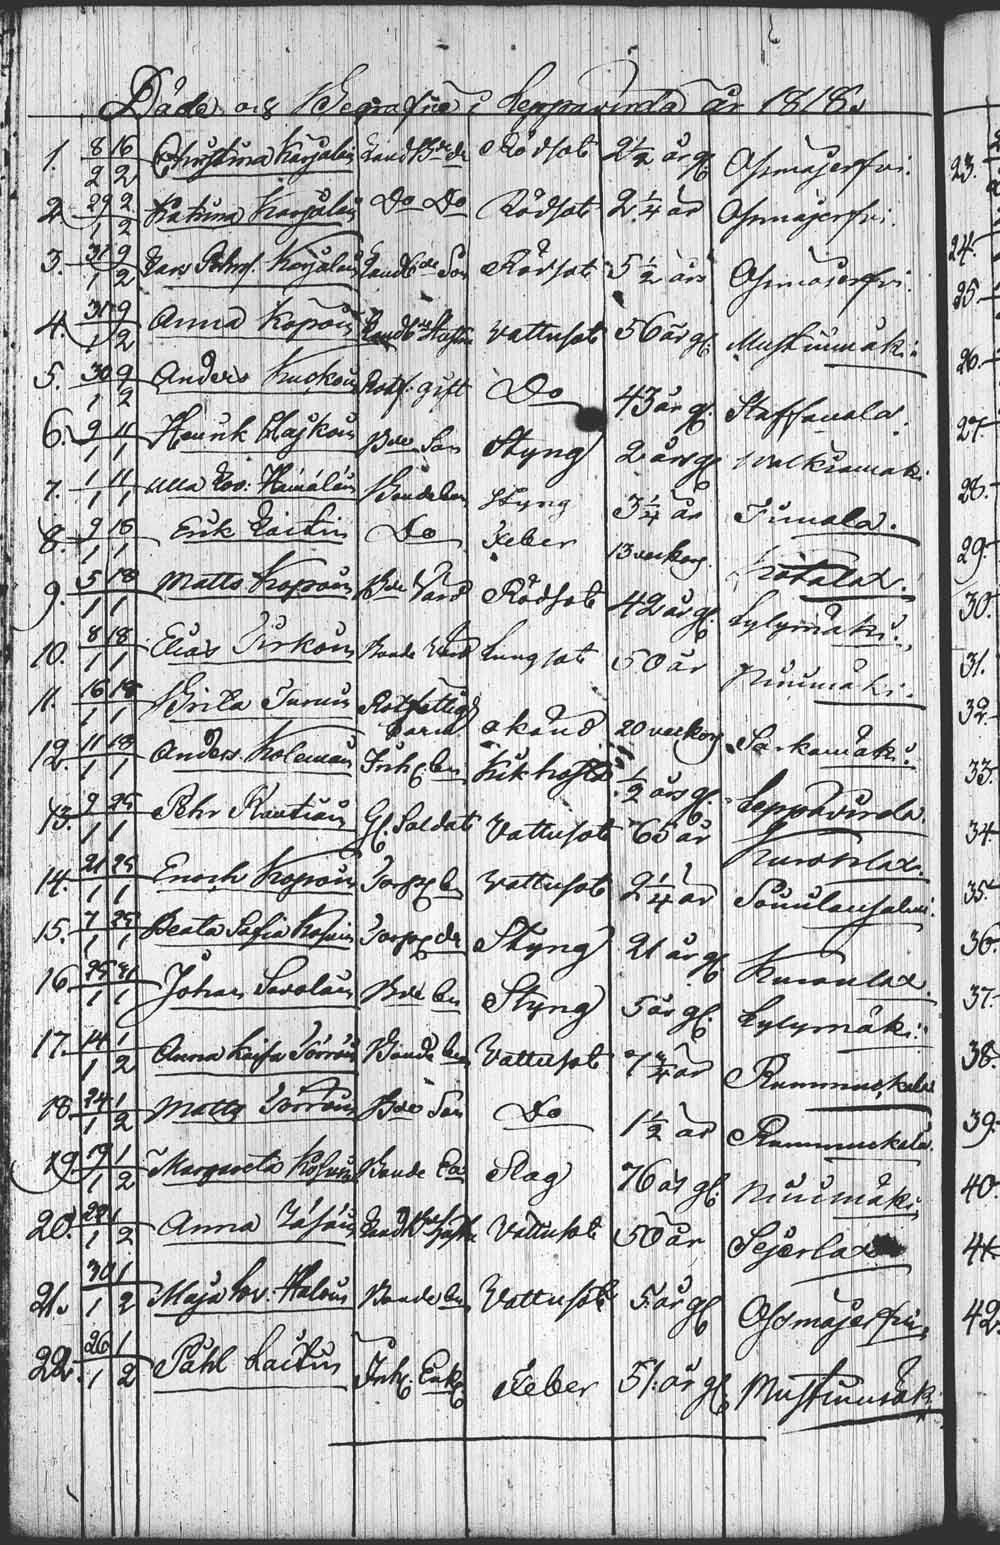 Döde och Begrafne i Leppävirda år 1818.
1. 8/2 16/2 Christina Karjalain Landb:de Rödsot 2 1/2 år gl Osmajerfvi.
2. 29/1 2/2 Katrina Karjalain Do Do Rödsot 2 1/4 år Osmajerfvi.
3. 31/1 9/2 Lars Karjalain Landb:de Son Rödsot 5 1/2 års Osmajerfvi.
4. 31/1 9/2 Anna Kopoin Landb:des Vattusot 56 år gl Mustinmäki.
5. 30/1 9/2 Anders Kuckoin gift Do 43 år gl. Staffvala
6. 9/1 11/1 Henrik B:de Son Styng 2 års gl Valkiamäki.
7. 1/1 11/1 Ulla Hämäläin Bonde bn Styng 3 1/4 år Timola.
8. 9/1 18/1 Erik Laitin Do Feber 13 veckor Kotalax.
9. 5/1 18/1 Matts Kopoin B:de Värd Rödsot 42 år gl. Lylymäki.
10. 8/1 18/1 Elias Tirkoin Bonde Värd Lungsot 50 år Niinimäki.
11. 16/1 18/1 Brita Turuin Rotfattigs barn okänd 20 veckors Sarkamäki.
12. 11/1 18/1 Anders Kolemain Inh: bn Kikhosta 1/2 års gl. Leppävirda.
13. 9/1 25/1 Pehr Rautiain Gl. Soldat Vattusot 65 år Kurolax.
14. 21/1 25/1 Enoch Kopoin Torp bn Vattusot 2 1/4 år Soinilansalmi.
15. 7/1 25/1 Beata Sofia Torp Styng 21 år gl Kurolax.
16. 25/1 31/1 Johan Savolain B:de bn Styng 5 år gl. Lylymäki.
17. 14/1 1/2 Anna Kaisa Törröin Bonde bn Vattusot 7 3/4 år Rummukala
18. 24/1 1/2 Matts Törröin B:de Son Do 1 1/2 år Rummukala.
19. 19/1 1/2 Margareta Bonde Slag 76 års gl. Niinimäki
20. 22/1 1/2 Anna Landb:des Vattusot 50 år Sejerlax
21. 30/1 1/2 Maja Lov. Haloin Bonde bn Vattusot 5 år gl Osmajerfvi
22. 26/1 1/2 Påhl Laitin Inh: Enkl. Feber 51 år gl Mustinmäki
23.
24.
25.
26.
27.
28.
29.
30.
31.
32.
33.
34.
35.
36.
37.
38.
39.
40.
41.
42.